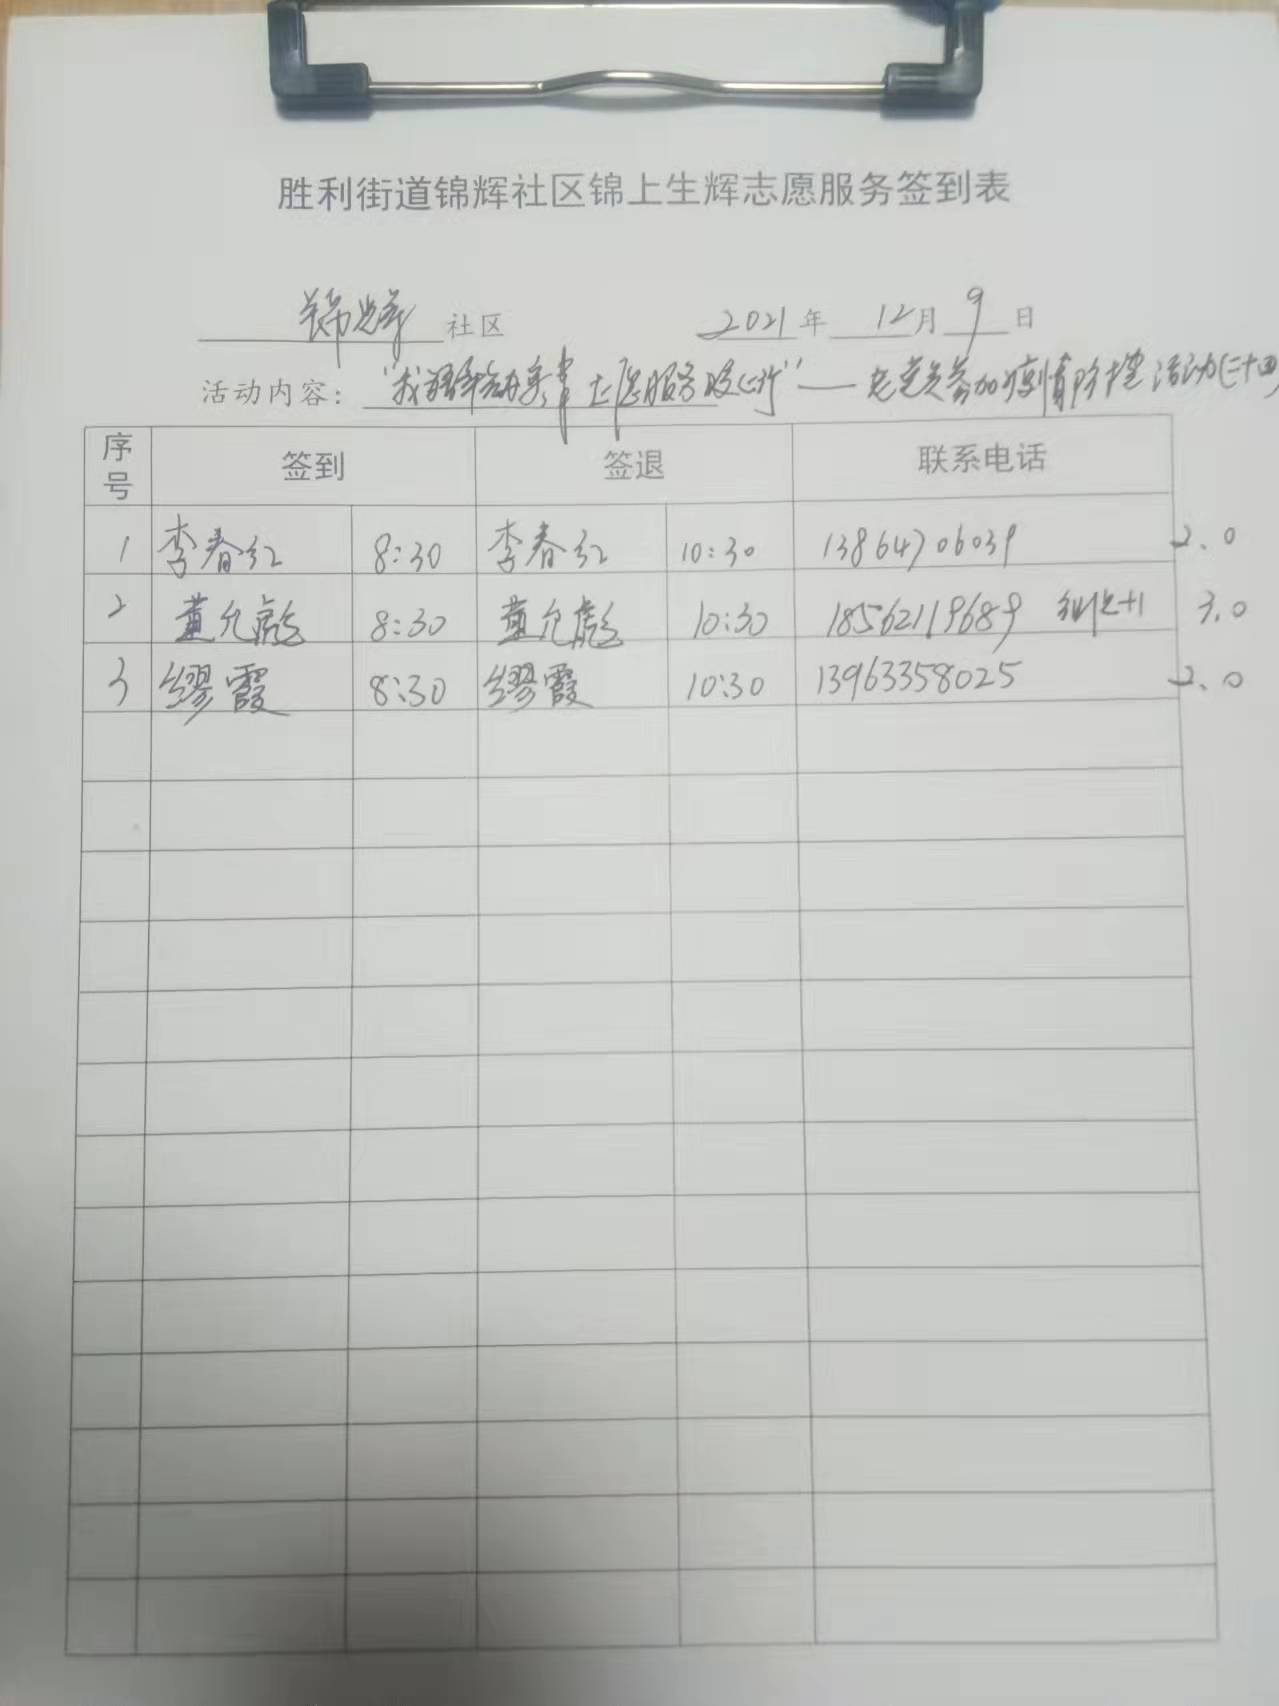 胜利街道锦辉社区锦上生辉志愿服务签到表
锦辉 社区 2021 年 12 月 9 日
活动内容： “我为群众办实事 志愿服务我先行”——老党员参加疫情防控活动(二十四)
序号 签到 签退 联系电话
1 李春红 8:30 李春红 10:30 13864706039 2.0
2 董允彪 8:30 董允彪 10:30 18562119689 组长+1 3.0
3 缪霞 8:30 缪霞 10:30 13963358025 2.0